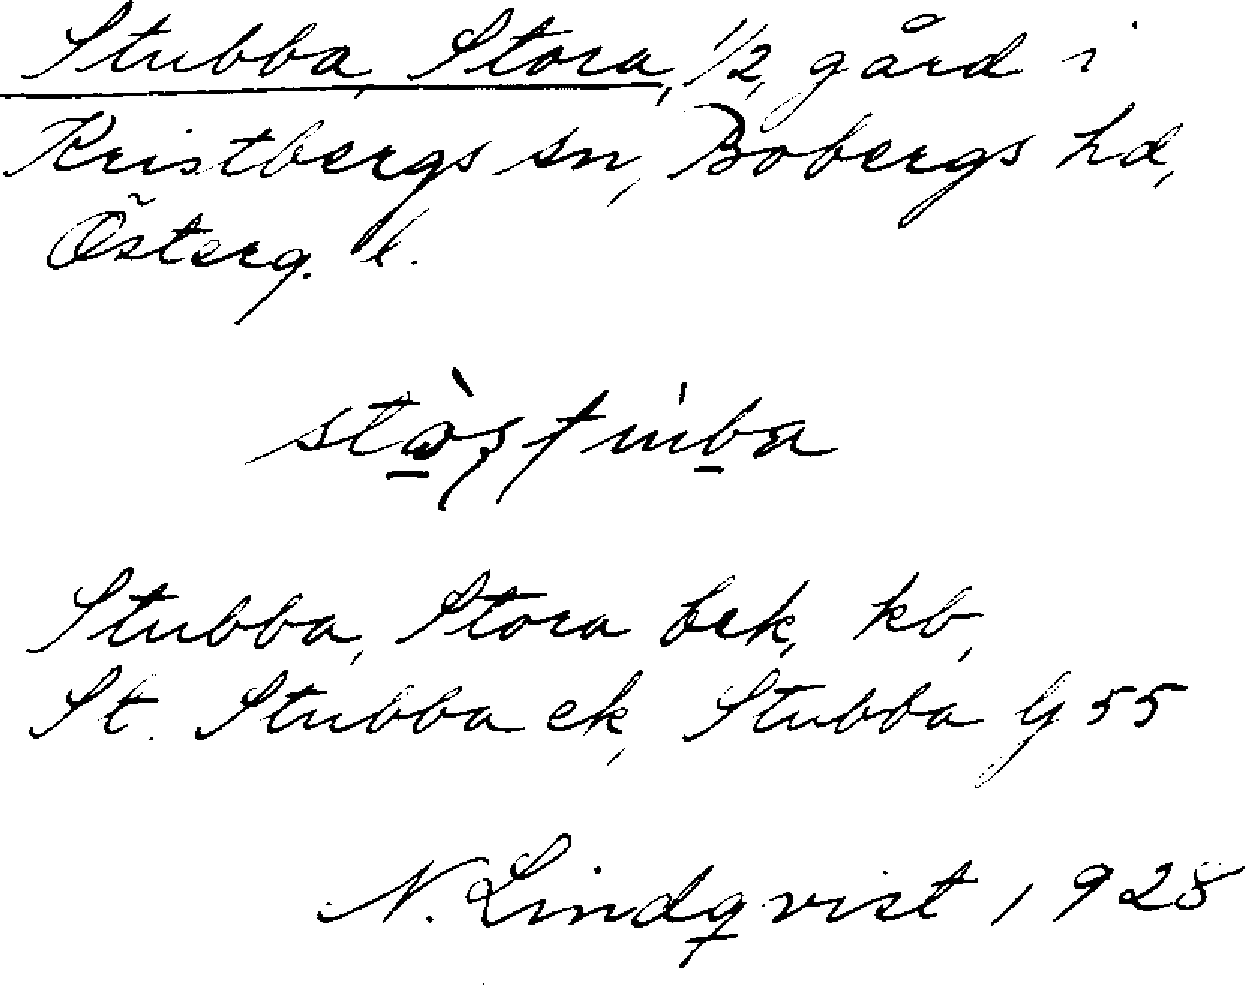 Stubba, Stora, 1/2, gård i
Kristbergs sn, Bobergs hd,
Österg. l.
Stubba, Stora brk, kb,
St. Stubba ek, Stubba G 55
N. Lindqvist 1928